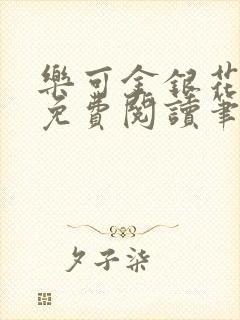 樂可金銀花
免費閱讀筆
夕子柒